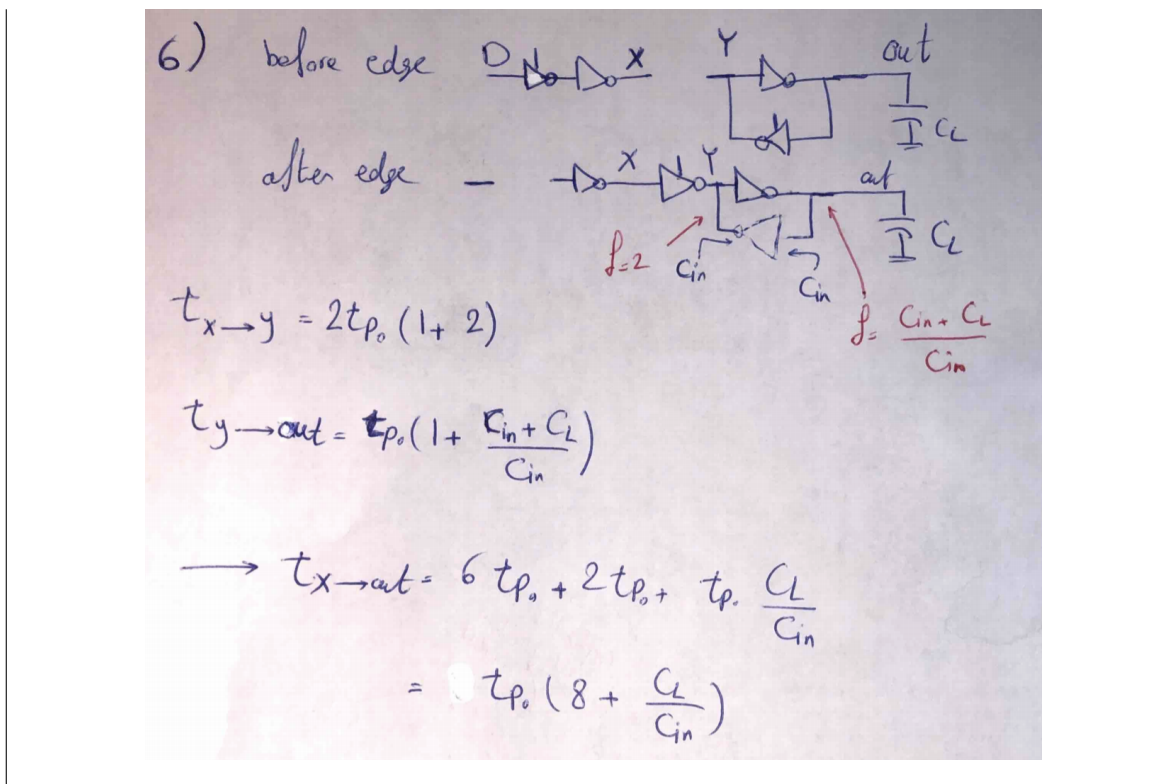 6) before edge D X Y out
C_L
after edge – X Y out
C_L
f=2 Cin Cin
t_{x→y} = 2t_{p0}(1+2)
f= \frac{Cin + C_L}{Cin}
t_{y→out} = t_{p0}(1 + \frac{Cin + C_L}{Cin})
→ t_{x→out} = 6 t_{p0} + 2 t_{p0} + t_{p0} \frac{C_L}{Cin}
= t_{p0}(8 + \frac{C_L}{Cin})